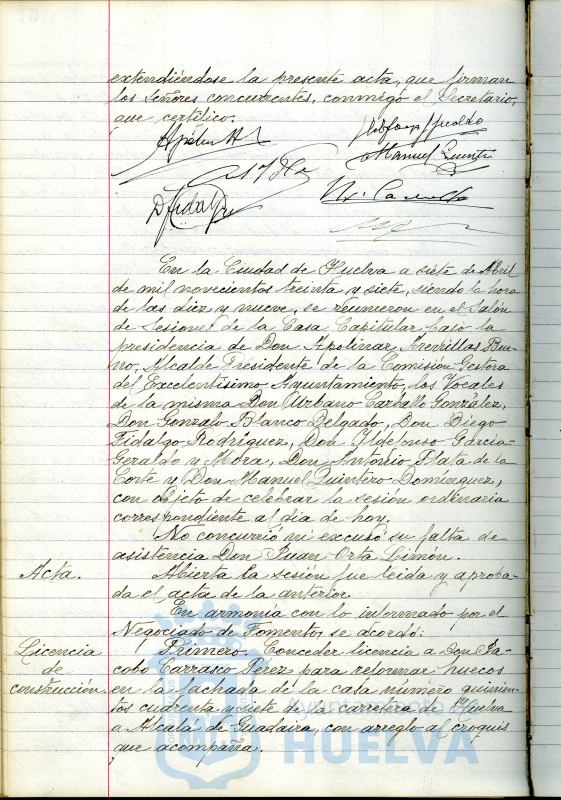 extendiéndose la presente acta, que firman
los señores concurrentes, conmigo el Secretario,
que certifico.
Manuel Quinte
D Fidalgo
En la Ciudad de Huelva a siete de Abril
de mil novecientos treinta y siete, siendo la hora
de las diez y nueve, se reunieron en el Salón
de Sesiones de la Casa Capitular bajo la
presidencia de Don Apolinar Arenillas Bue-
no, Alcalde Presidente de la Comisión Gestora
del Excelentísimo Ayuntamiento, los Vocales
de la misma Don Urbano Carballo González,
Don Gonzalo Blanco Delgado, Don Diego
Fidalgo Rodríguez, Don Ildefonso García-
Geraldo y Mora, Don Antonio Plata de la
Corte y Don Manuel Quintero Domínguez,
con objeto de celebrar la sesión ordinaria
correspondiente al dia de hoy.
No concurrió ni excusó su falta de
asistencia Don Juan Orta Limón.
Acta.
Abierta la sesión fue leida y aproba-
da el acta de la anterior.
En armonia con lo informado por el
Negociado de Fomento, se acordó:
Licencia
de
construcción.
Primero. Conceder licencia a Don Ja-
cobo Carrasco Pérez para reformar huecos
en la fachada de la casa número quinien-
tos cuarenta y siete de la carretera de Huelva
a Alcalá de Guadaira, con arreglo al croquis
que acompaña.
Ayuntamiento
HUELVA